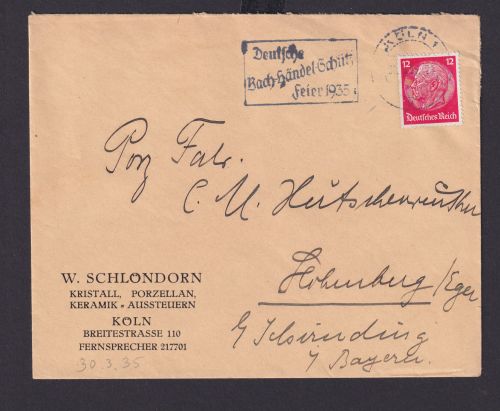 Deutsche
Bach-Händel-Schütz
Feier 1935
KÖLN 1
12 12
Deutsches Reich
Porz Fabr.
C. M. Hutschenreuther
Hohenberg/Eger
W. SCHLÖNDORN
KRISTALL, PORZELLAN,
KERAMIK - AUSSTEUERN
KÖLN
BREITESTRASSE 110
FERNSPRECHER 217701
Bayern.
30.3.35